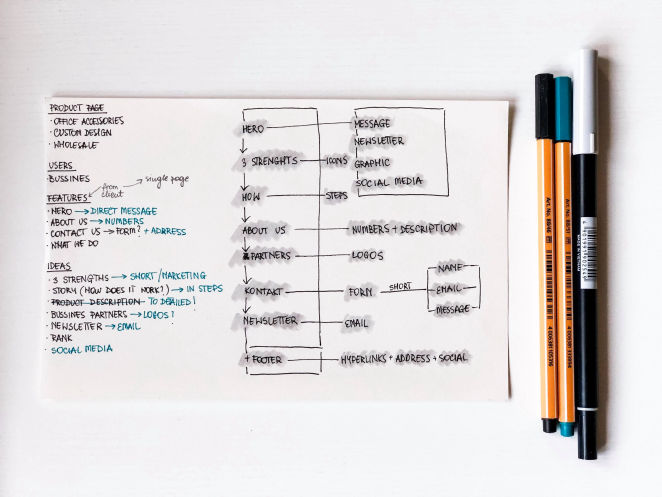 PRODUCT PAGE
· OFFICE ACCESSORIES
· CUSTOM DESIGN
· WHOLESALE
USERS
BUSSINES
FEATURES
from client
single page
· HERO → DIRECT MESSAGE
· ABOUT US → NUMBERS
· CONTACT US → FORM? + ADDRESS
· WHAT WE DO
IDEAS
· 3 STRENGTHS → SHORT/MARKETING
· STORY (HOW DOES IT WORK?) → IN STEPS
· PRODUCT DESCRIPTION - TO DETAILED!
· BUSSINES PARTNERS → LOGOS?
· NEWSLETTER → EMAIL
· RANK
· SOCIAL MEDIA
HERO
MESSAGE
NEWSLETTER
GRAPHIC
SOCIAL MEDIA
3 STRENGHTS
ICONS
HOW
STEPS
ABOUT US
NUMBERS + DESCRIPTION
PARTNERS
LOGOS
KONTAKT
FORM
SHORT
NAME
EMAIL
MESSAGE
NEWSLETTER
EMAIL
+ FOOTER
HYPERLINKS + ADDRESS + SOCIAL
Art. No. 88/46
Art. No. 88/51